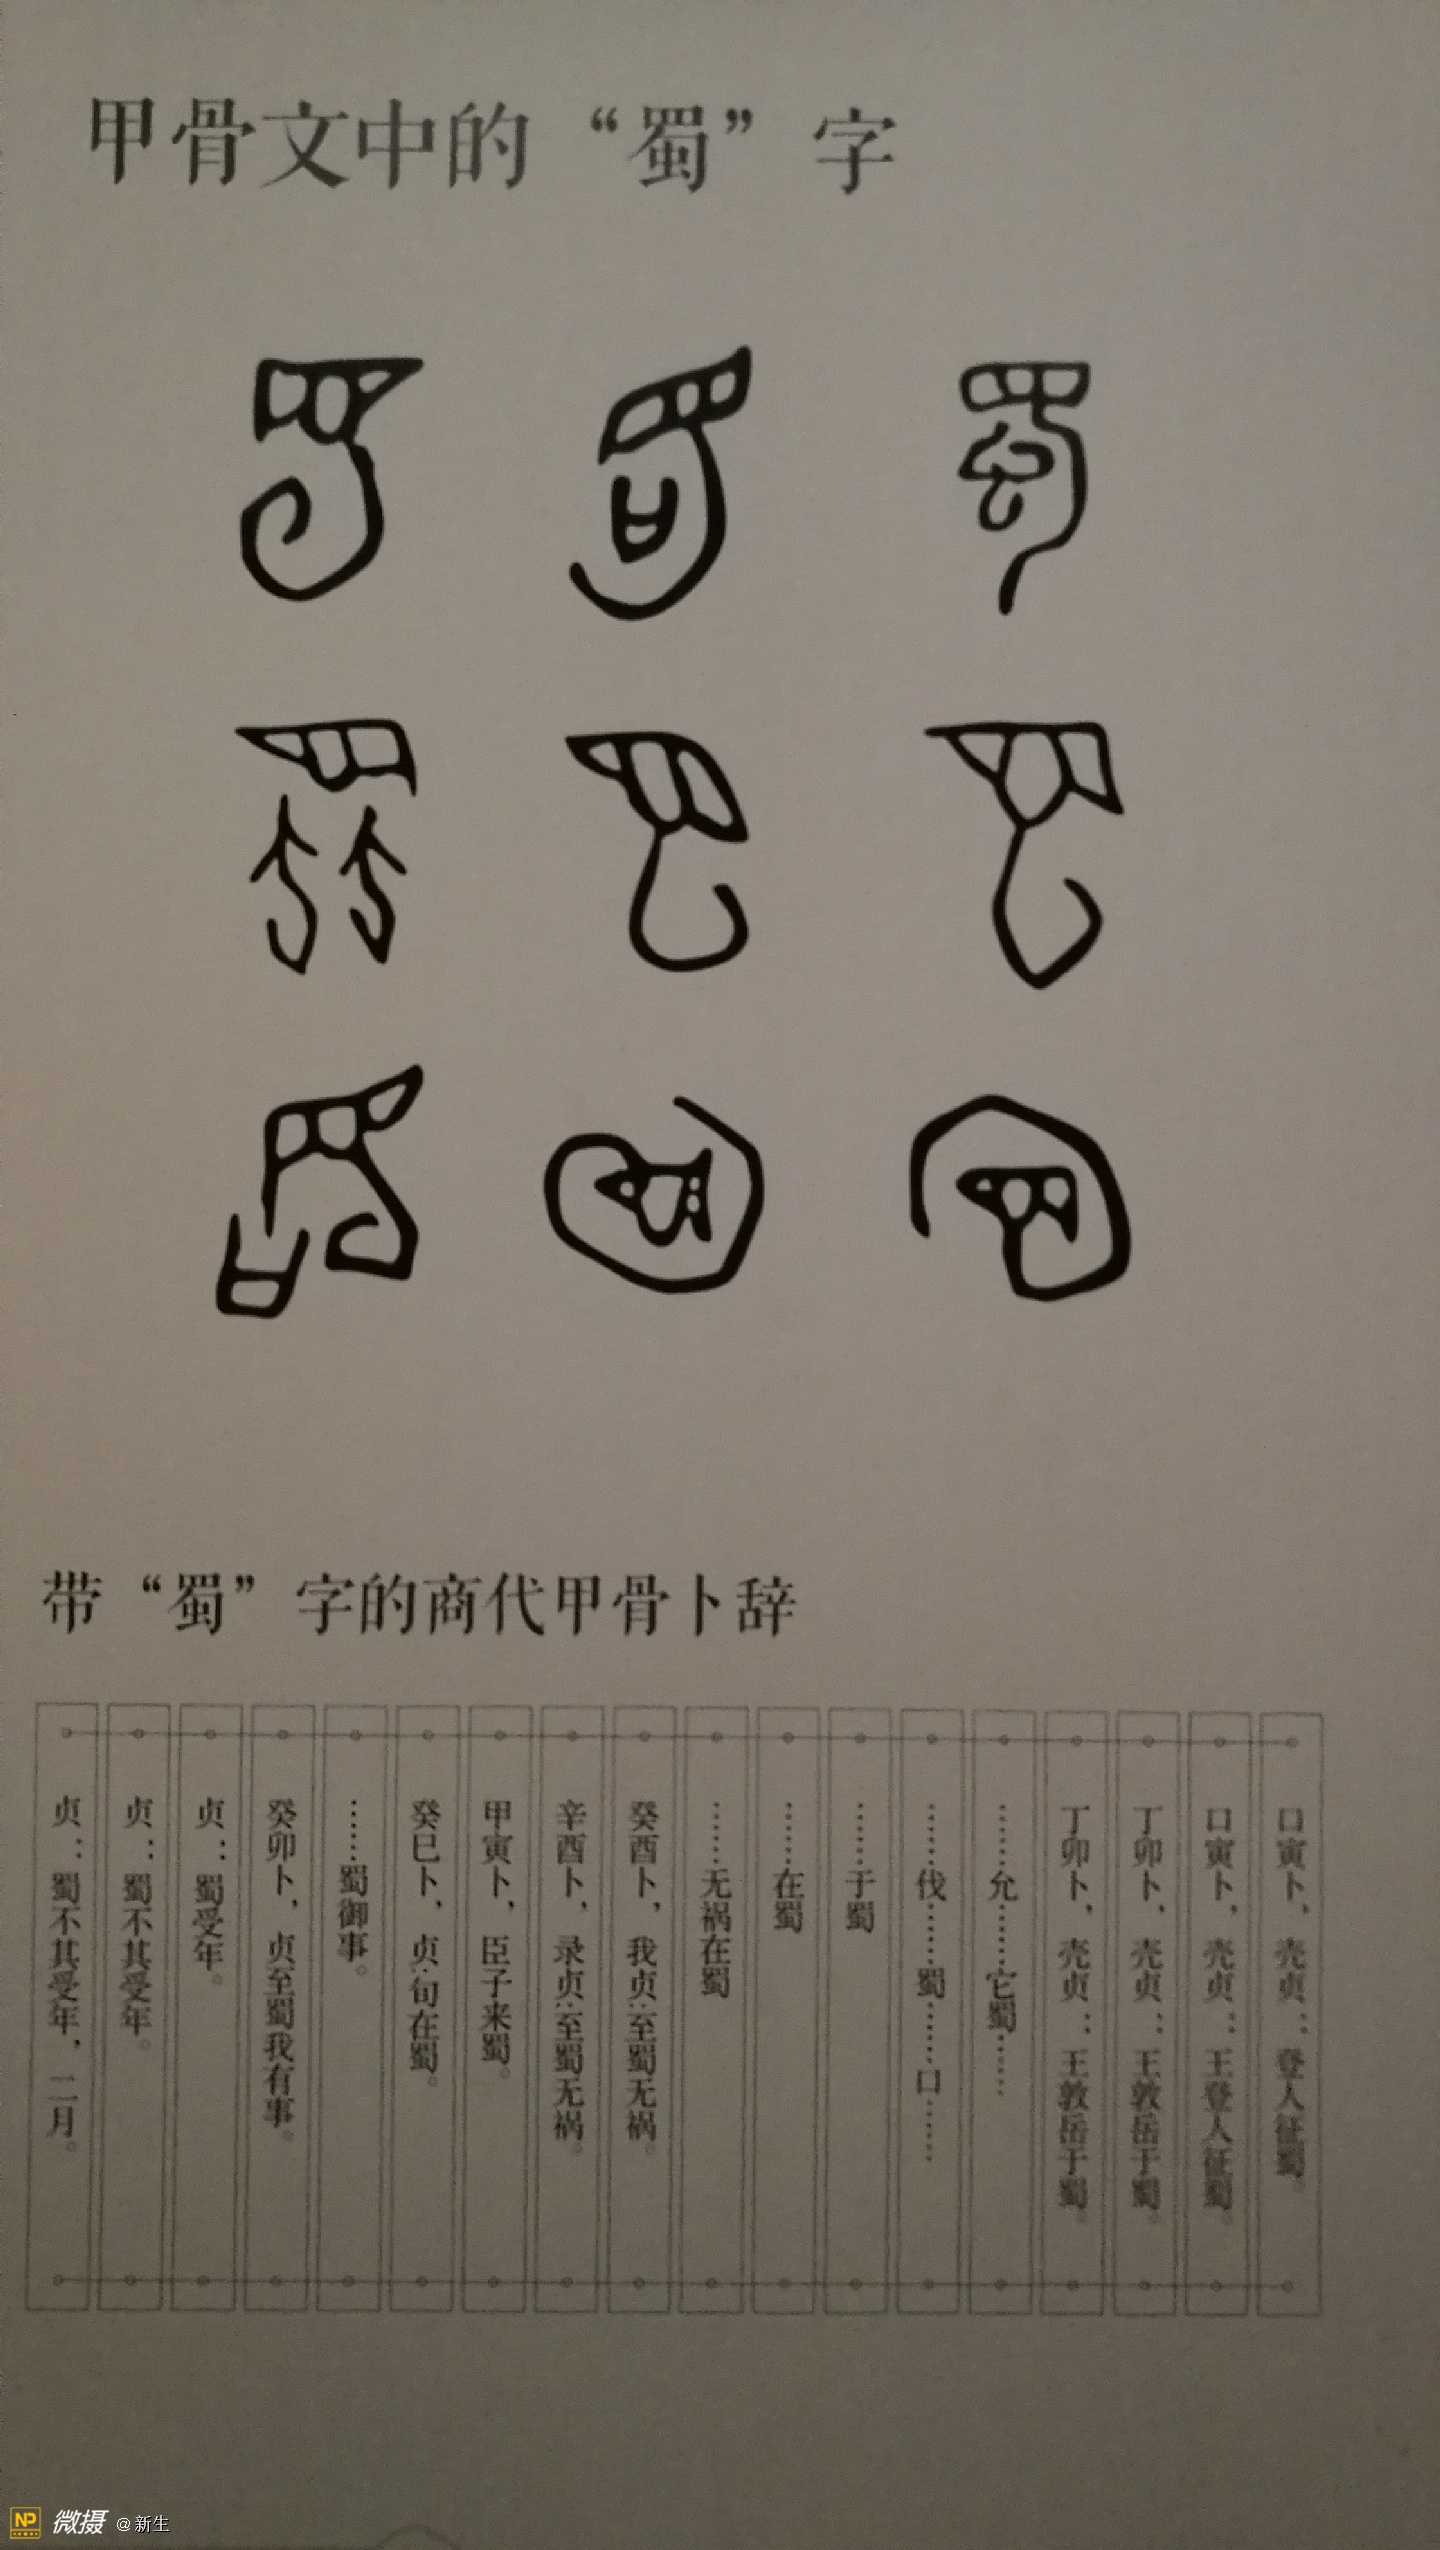 甲骨文中的“蜀”字
带“蜀”字的商代甲骨卜辞
口寅卜，壳贞：登人征蜀。
口寅卜，壳贞：王登人征蜀。
丁卯卜，壳贞：王敦岳于蜀。
丁卯卜，壳贞：王敦岳于蜀。
……允……它蜀……
……伐……蜀……口……
……于蜀
……在蜀
……无祸在蜀
癸酉卜，我贞:至蜀无祸。
辛酉卜，录贞:至蜀无祸。
甲寅卜，臣子来蜀。
癸巳卜，贞:旬在蜀。
……蜀御事。
癸卯卜，贞至蜀我有事。
贞：蜀受年。
贞：蜀不其受年。
贞：蜀不其受年，二月。
NP 微摄 @新生